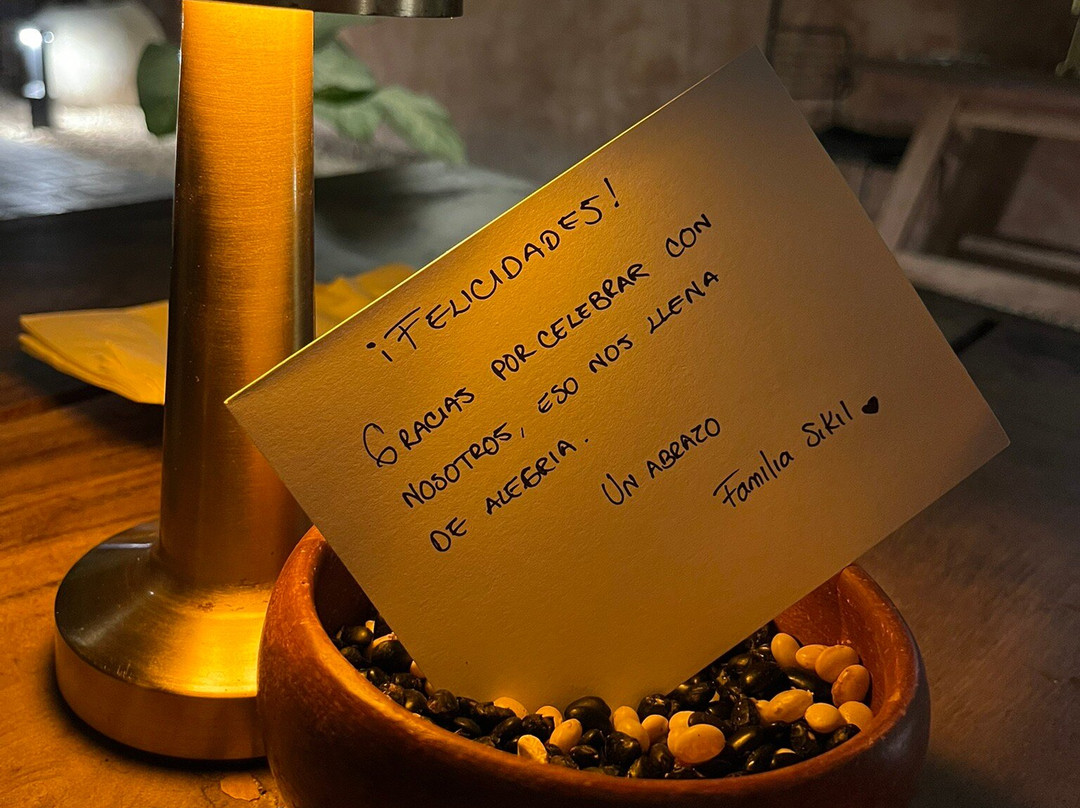 ¡FELICIDADES!
GRACIAS POR CELEBRAR CON
NOSOTROS, ESO NOS LLENA
DE ALEGRIA.
UN ABRAZO
Familia Sikil ♥